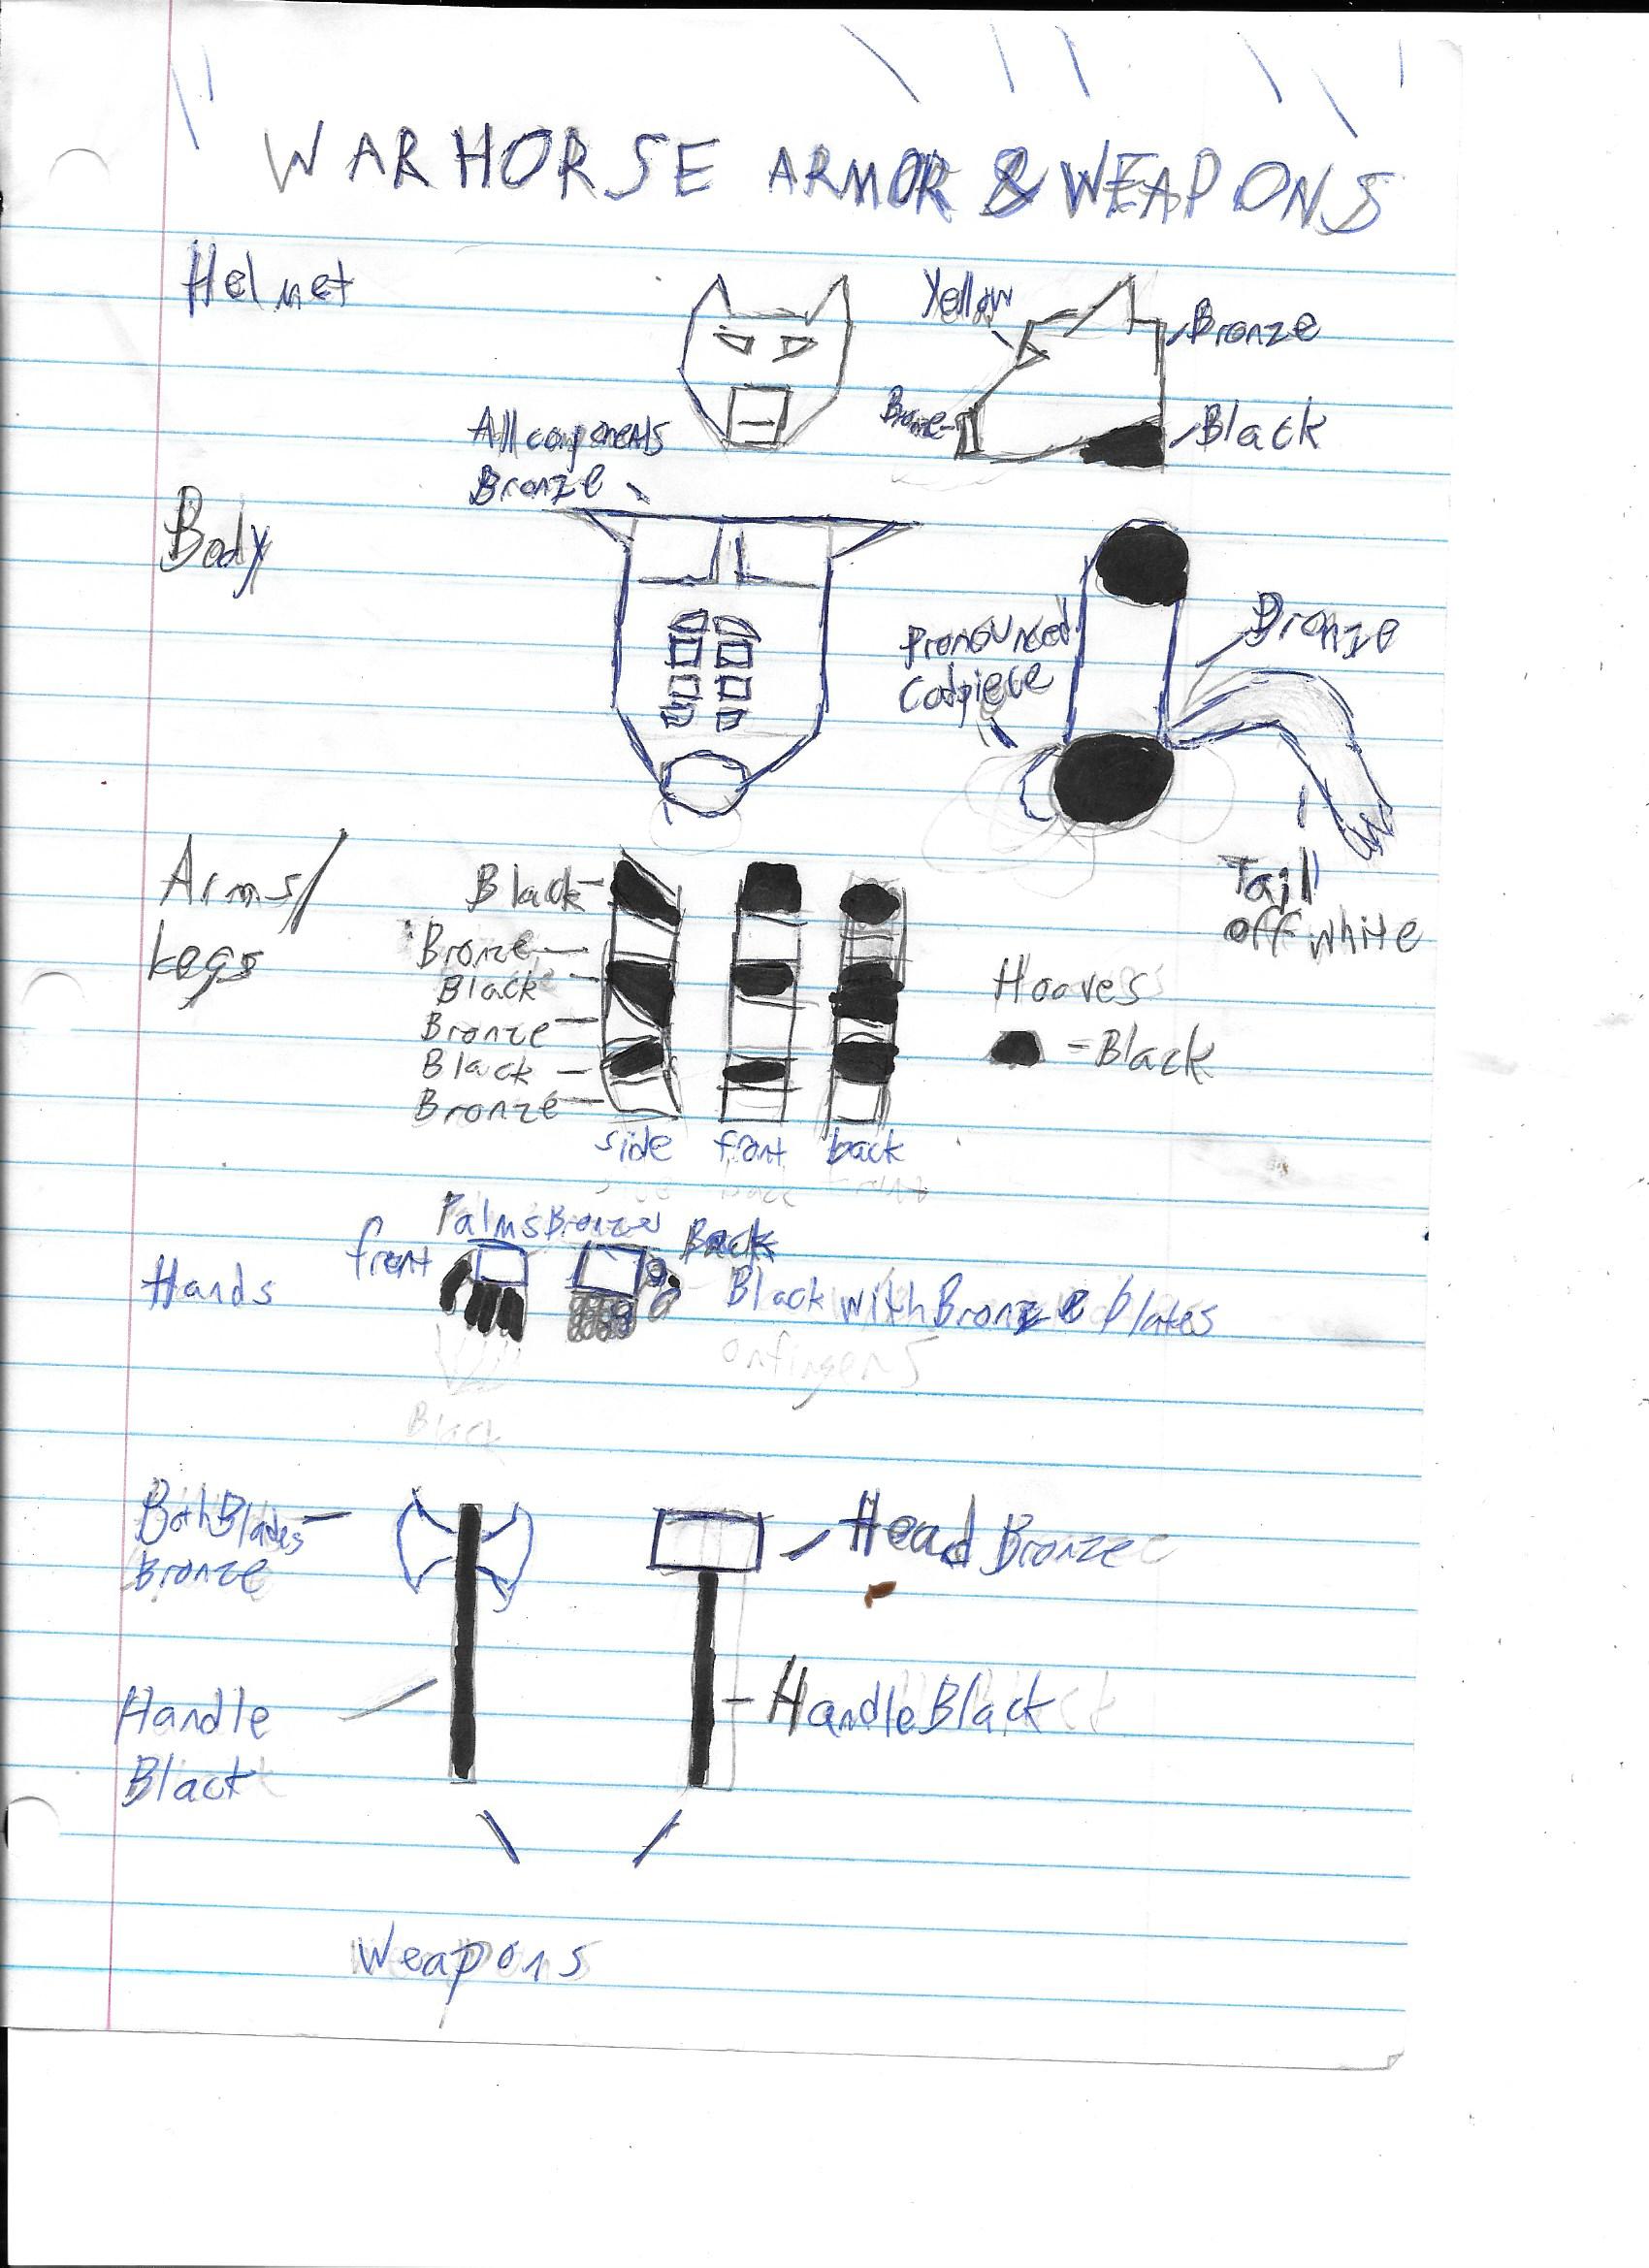 WARHORSE ARMOR & WEAPONS
Helmet
Yellow
Bronze
Bronze
Black
All components
Bronze
Body
Pronounced
Codpiece
Bronze
Tail
off white
Arms/
Legs
Black
Bronze
Black
Bronze
Black
Bronze
side front back
Hooves
=Black
Hands
front
Palms Bronze
Back
Black with Bronze plates
on fingers
Black
Both Blades
Bronze
Head Bronze
Handle
Black
Handle Black
Weapons